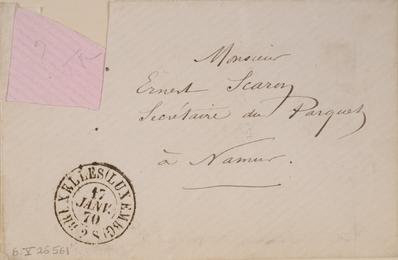 Monsieur
Ernest Scaron
Secrétaire du Parquet
à Namur.
BRUXELLES (LUXEMBG)
17
JANV.
70
2 S
6: V 26561